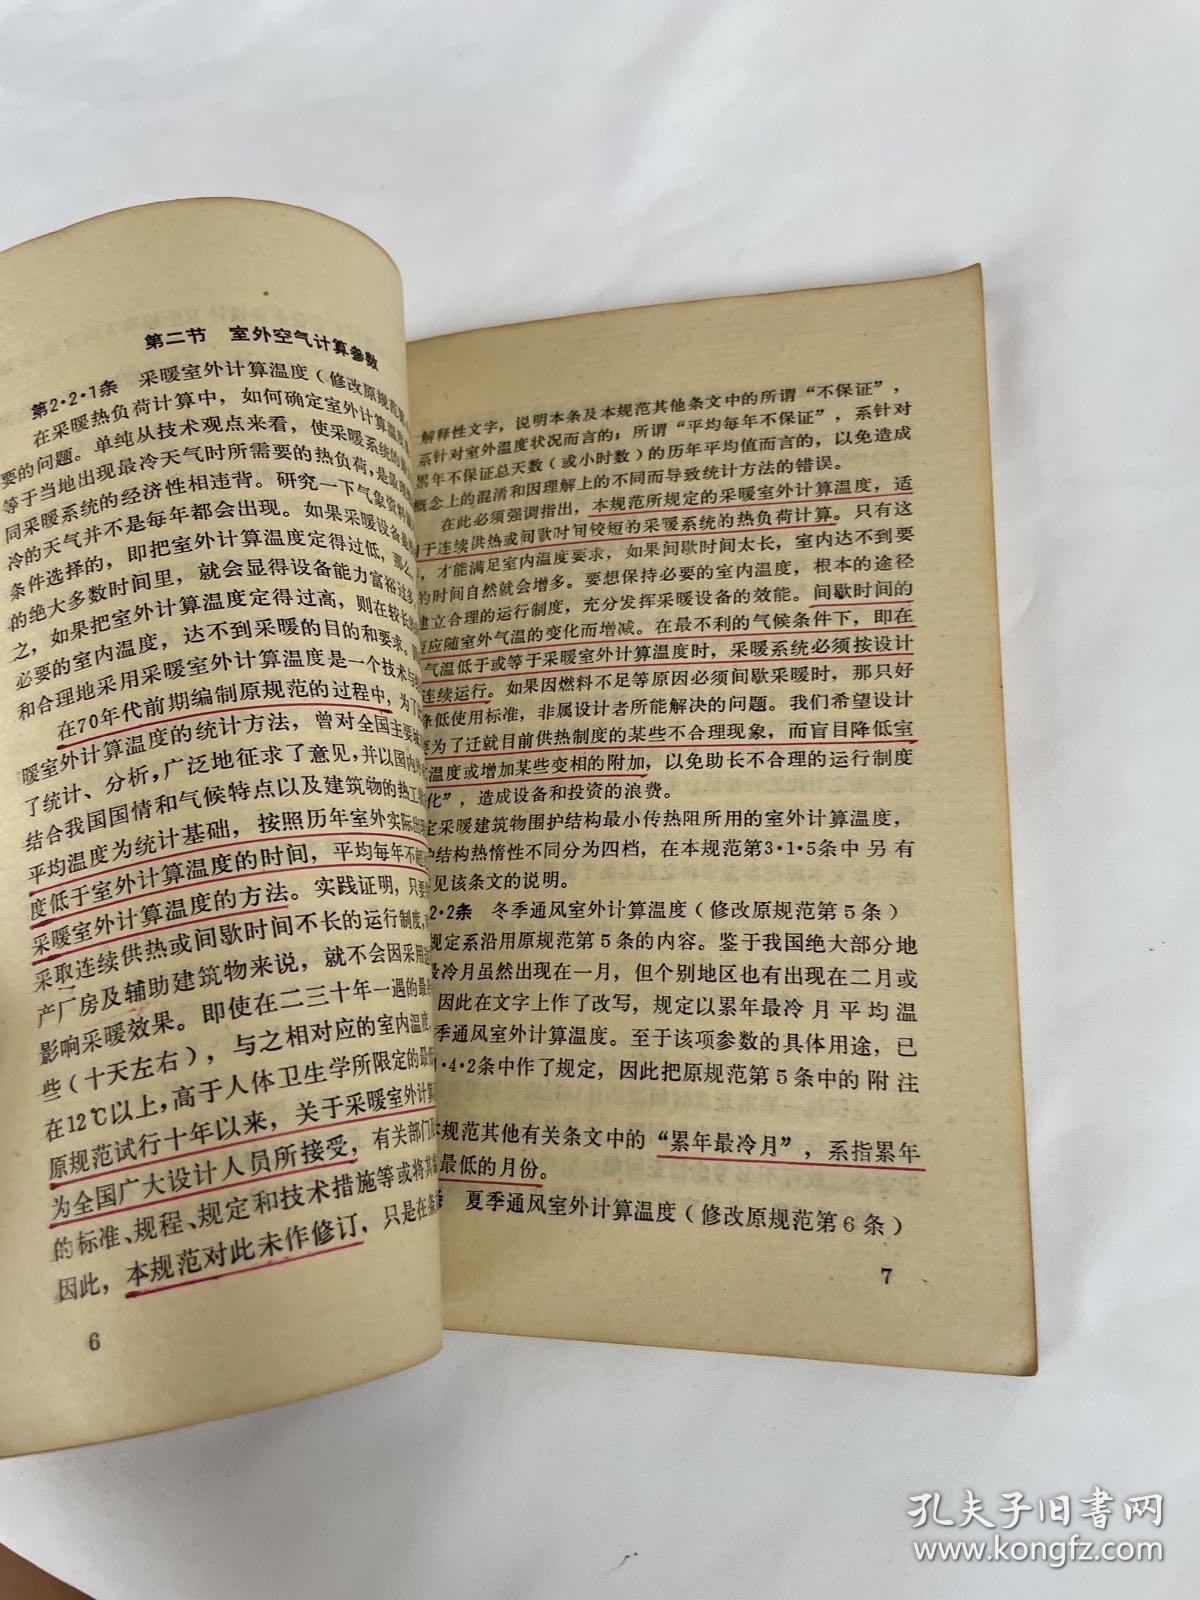 第二节 室外空气计算参数
第2·2·1条 采暖室外计算温度(修改原规范
在采暖热负荷计算中,如何确定室外计算温度
要的问题。单纯从技术观点来看,使采暖系统的
等于当地出现最冷天气时所需要的热负荷,是最
同采暖系统的经济性相违背。研究一下气象资料
冷的天气并不是每年都会出现。如果采暖设备是
条件选择的,即把室外计算温度定得过低,那么
的绝大多数时间里,就会显得设备能力富裕过多
之,如果把室外计算温度定得过高,则在较长的
必要的室内温度,达不到采暖的目的和要求。
和合理地采用采暖室外计算温度是一个技术与
在70年代前期编制原规范的过程中,为了
暖室外计算温度的统计方法,曾对全国主要城
了统计、分析,广泛地征求了意见,并以国内
结合我国国情和气候特点以及建筑物的热工
平均温度为统计基础,按照历年室外实际出
度低于室外计算温度的时间,平均每年不超
采暖室外计算温度的方法。实践证明,只要
采取连续供热或间歇时间不长的运行制度,
产厂房及辅助建筑物来说,就不会因采用
影响采暖效果。即使在二三十年一遇的最
些(十天左右),与之相对应的室内温度,
在12℃以上,高于人体卫生学所限定的最
原规范试行十年以来,关于采暖室外计
为全国广大设计人员所接受,有关部门
的标准、规程、规定和技术措施等或将其
因此,本规范对此未作修订,只是在条
6
解释性文字,说明本条及本规范其他条文中的所谓“不保证”,
系针对室外温度状况而言的;所谓“平均每年不保证”,系针对
累年不保证总天数(或小时数)的历年平均值而言的,以免造成
概念上的混淆和因理解上的不同而导致统计方法的错误。
在此必须强调指出,本规范所规定的采暖室外计算温度,适
于连续供热或间歇时间较短的采暖系统的热负荷计算。只有这
,才能满足室内温度要求,如果间歇时间太长,室内达不到要
的时间自然就会增多。要想保持必要的室内温度,根本的途径
建立合理的运行制度,充分发挥采暖设备的效能。间歇时间的
应随室外气温的变化而增减。在最不利的气候条件下,即在
气温低于或等于采暖室外计算温度时,采暖系统必须按设计
连续运行。如果因燃料不足等原因必须间歇采暖时,那只好
降低使用标准,非属设计者所能解决的问题。我们希望设计
为了迁就目前供热制度的某些不合理现象,而盲目降低室
温度或增加某些变相的附加,以免助长不合理的运行制度
化”,造成设备和投资的浪费。
定采暖建筑物围护结构最小传热阻所用的室外计算温度,
护结构热惰性不同分为四档,在本规范第3·1·5条中另有
见该条文的说明。
2·2条 冬季通风室外计算温度(修改原规范第5条)
规定系沿用原规范第5条的内容。鉴于我国绝大部分地
最冷月虽然出现在一月,但个别地区也有出现在二月或
因此在文字上作了改写,规定以累年最冷月平均温
季通风室外计算温度。至于该项参数的具体用途,已
·4·2条中作了规定,因此把原规范第5条中的附注
规范其他有关条文中的“累年最冷月”,系指累年
最低的月份。
条 夏季通风室外计算温度(修改原规范第6条)
7
孔夫子旧书网
www.kongfz.com